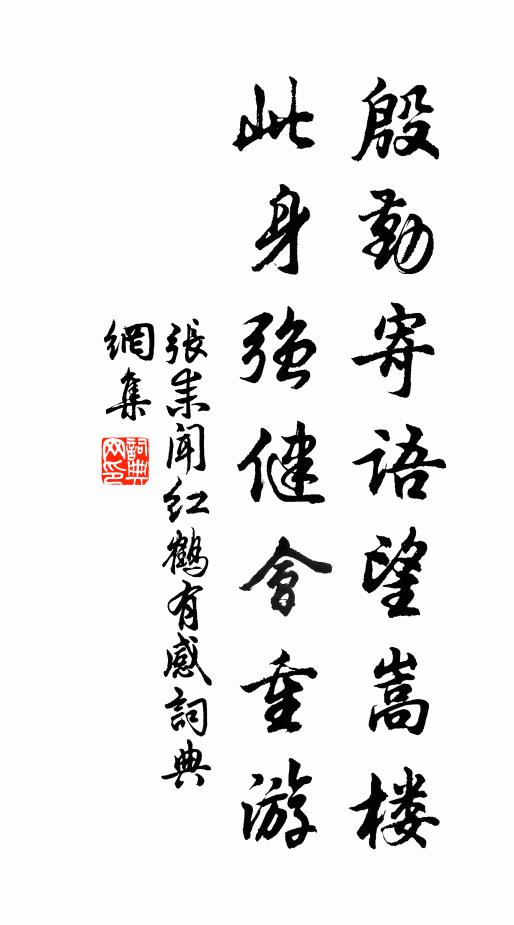 殷勤寄语望嵩楼
此身强健会重游
張耒闻红鶴有感詞典
網集
詞典网印